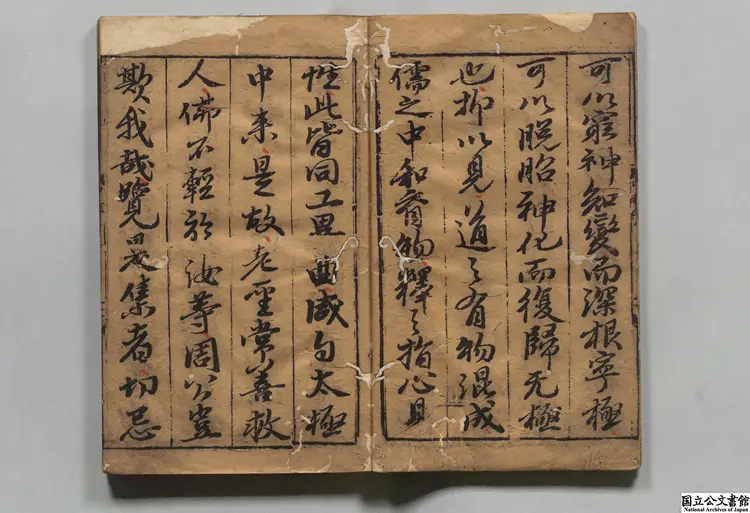 可以窮神知變而深根寧極
可以脱胎神化而復歸无極
也抑以見道之有物混成
儒之中和育物釋之指心見
性此皆同工異曲咸自太極
中來是故老聖常善救
人佛不輕於汝等周公豈
欺我哉覽是集者切忌
国立公文書館
National Archives of Japan